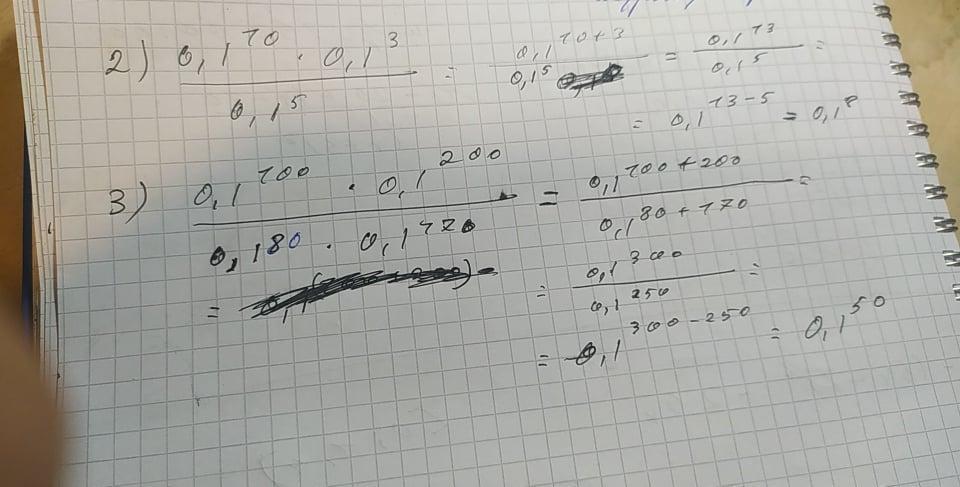 2) \frac{0,1^{10} · 0,1^{3}}{0,1^{5}} = \frac{0,1^{10+3}}{0,1^{5}} = \frac{0,1^{13}}{0,1^{5}} =
= 0,1^{13-5} = 0,1^{8}
3) \frac{0,1^{100} · 0,1^{200}}{0,1^{80} · 0,1^{170}} = \frac{0,1^{100+200}}{0,1^{80+170}} =
= \frac{0,1^{300}}{0,1^{250}} =
= 0,1^{300-250} = 0,1^{50}